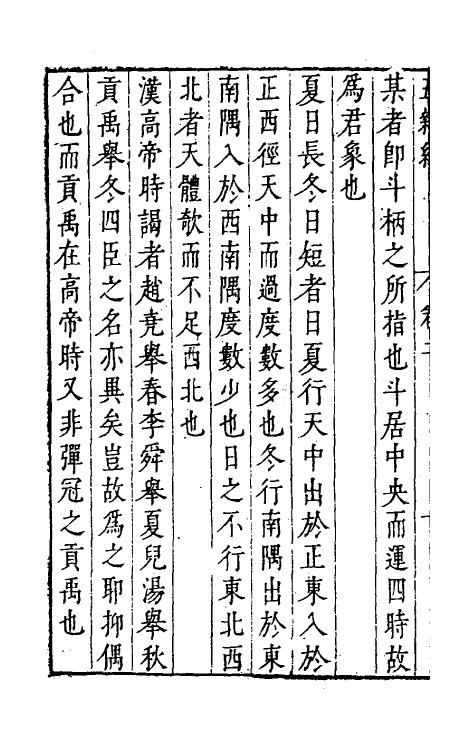 某者卽斗柄之所指也斗居中央而運四時故
爲君象也
夏日長冬日短者日夏行天中出於正東入於
正西徑天中而過度數多也冬行南隅出於東
南隅入於西南隅度數少也日之不行東北西
北者天體欹而不足西北也
漢高帝時謁者趙堯舉春李舜舉夏兒湯舉秋
貢禹舉冬四臣之名亦異矣豈故爲之耶抑偶
合也而貢禹在高帝時又非彈冠之貢禹也